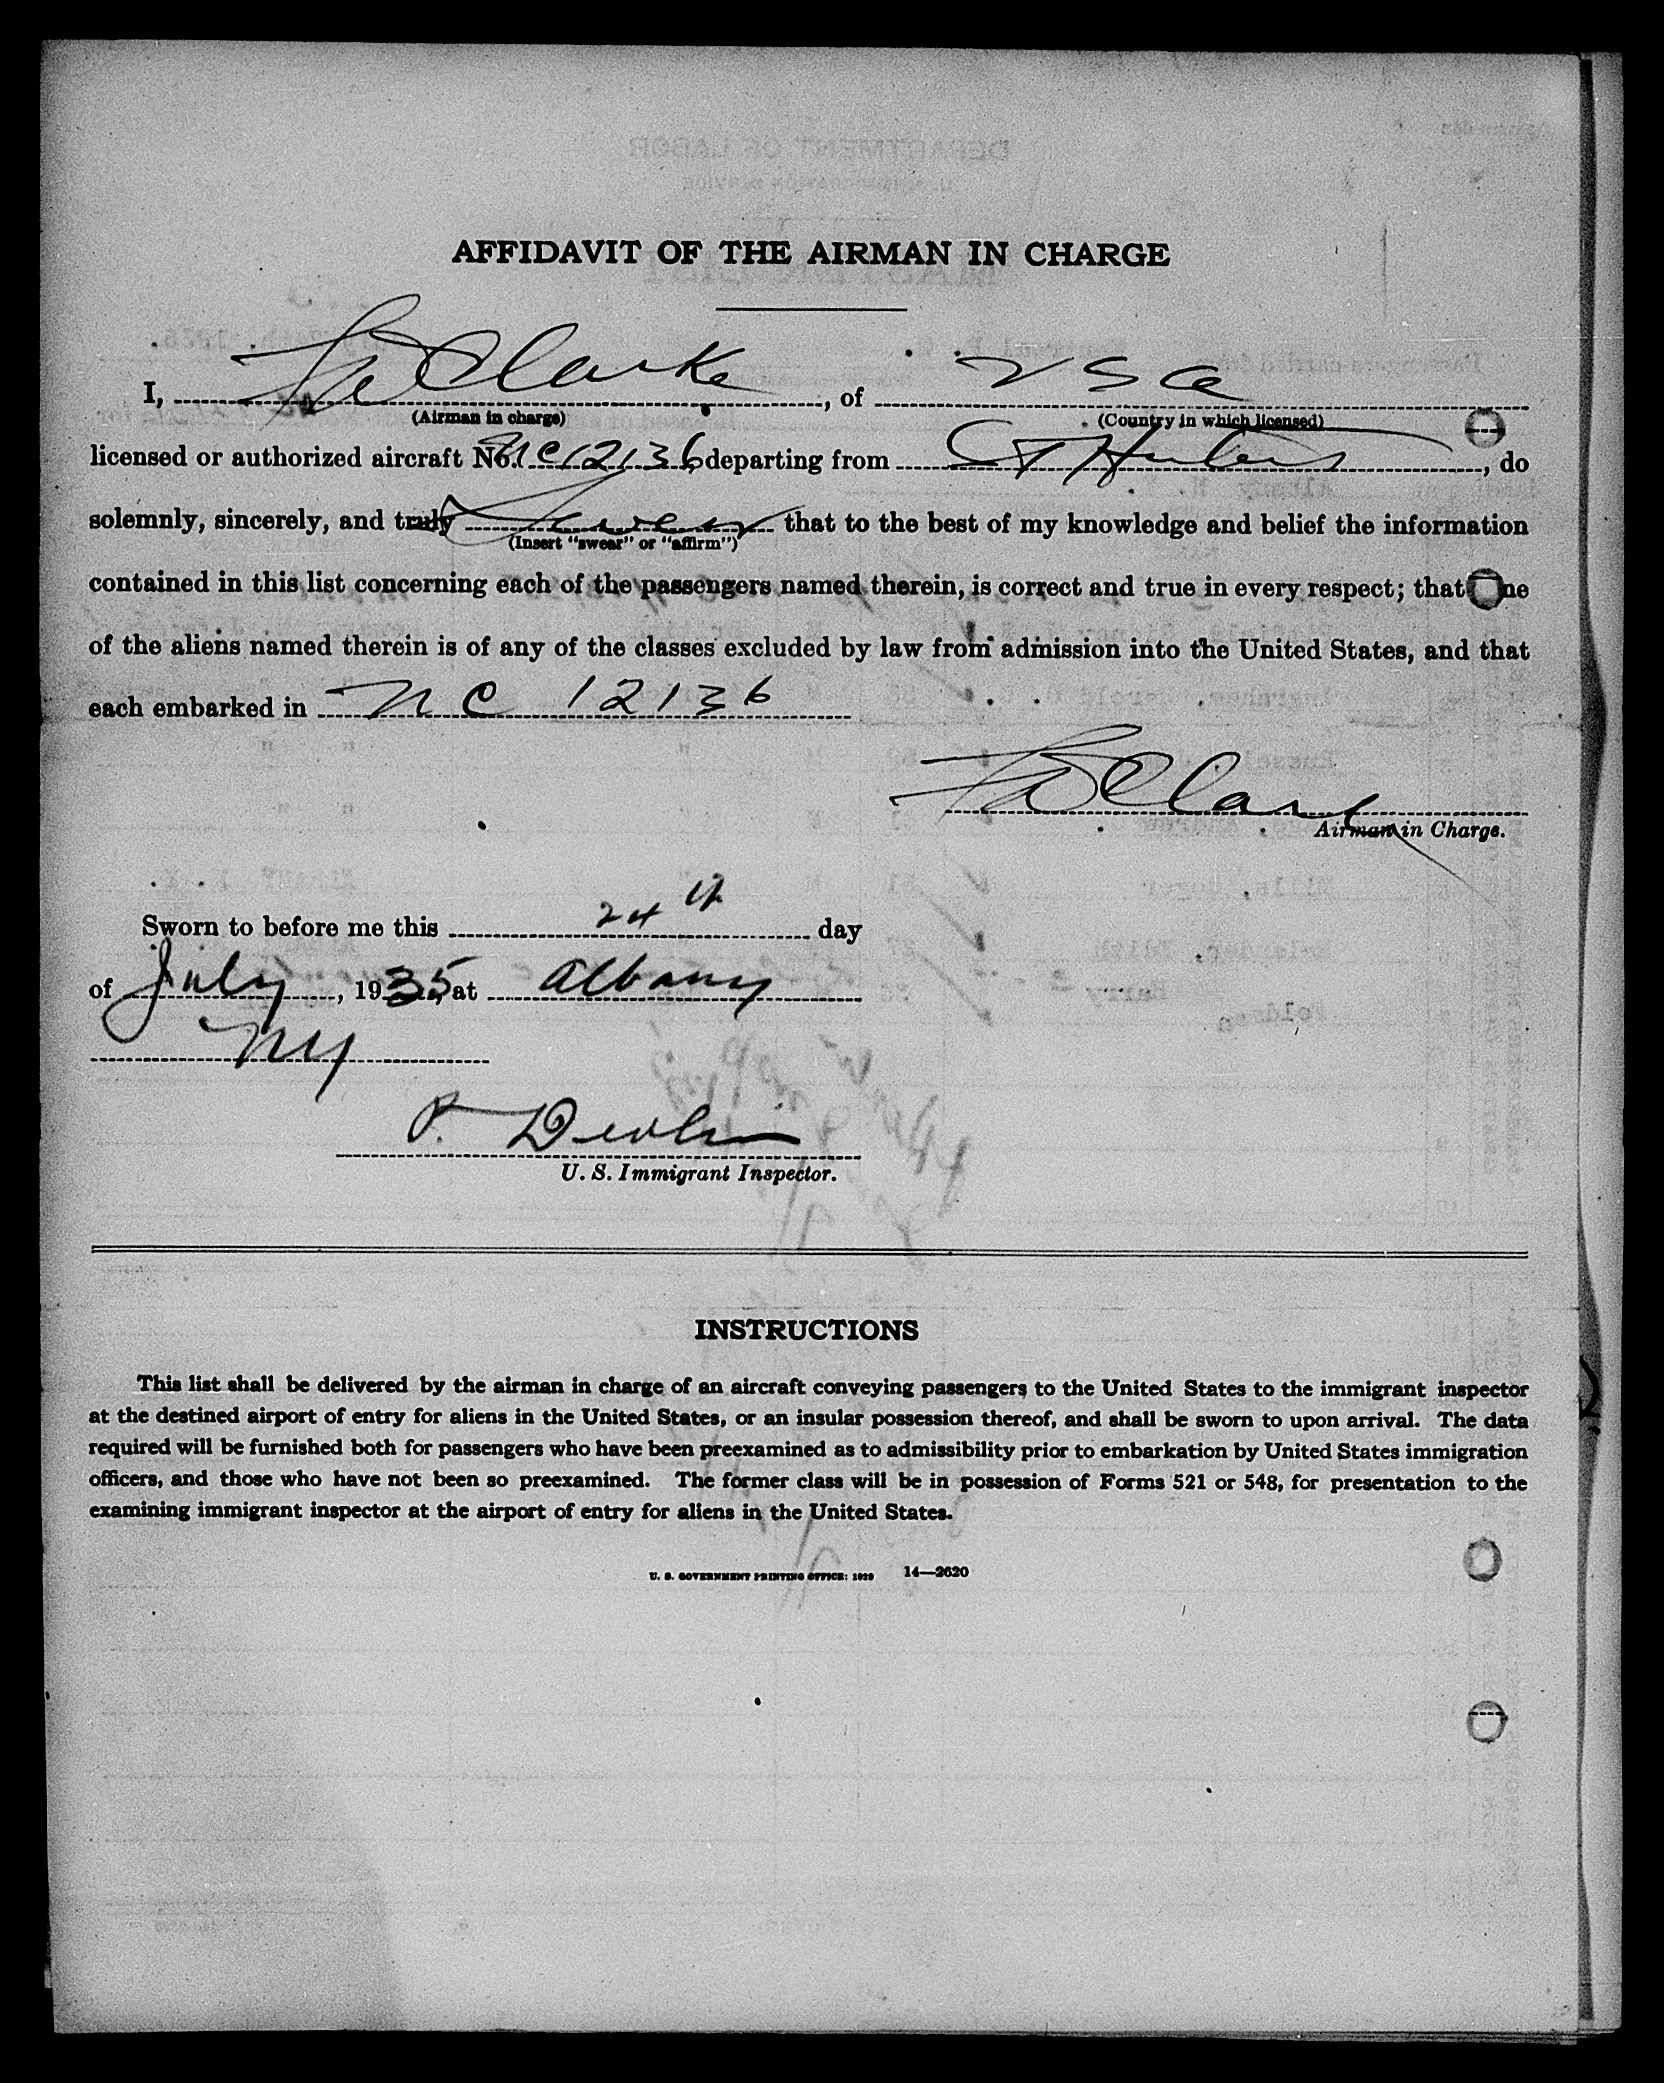 AFFIDAVIT OF THE AIRMAN IN CHARGE
I, Clarke, of USA
(Airman in charge) (Country in which licensed)
licensed or authorized aircraft No. NC12136, departing from St Hubert, do
solemnly, sincerely, and truly swear that to the best of my knowledge and belief the information
(Insert "swear" or "affirm")
contained in this list concerning each of the passengers named therein, is correct and true in every respect; that none
of the aliens named therein is of any of the classes excluded by law from admission into the United States, and that
each embarked in NC 12136
Clarke
Airman in Charge.
Sworn to before me this 24th day
of July, 1935, at Albany
NY
P. Devlin
U. S. Immigrant Inspector.
INSTRUCTIONS
This list shall be delivered by the airman in charge of an aircraft conveying passengers to the United States to the immigrant inspector
at the destined airport of entry for aliens in the United States, or an insular possession thereof, and shall be sworn to upon arrival. The data
required will be furnished both for passengers who have been preexamined as to admissibility prior to embarkation by United States immigration
officers, and those who have not been so preexamined. The former class will be in possession of Forms 521 or 548, for presentation to the
examining immigrant inspector at the airport of entry for aliens in the United States.
U. S. GOVERNMENT PRINTING OFFICE: 1929 14—2620